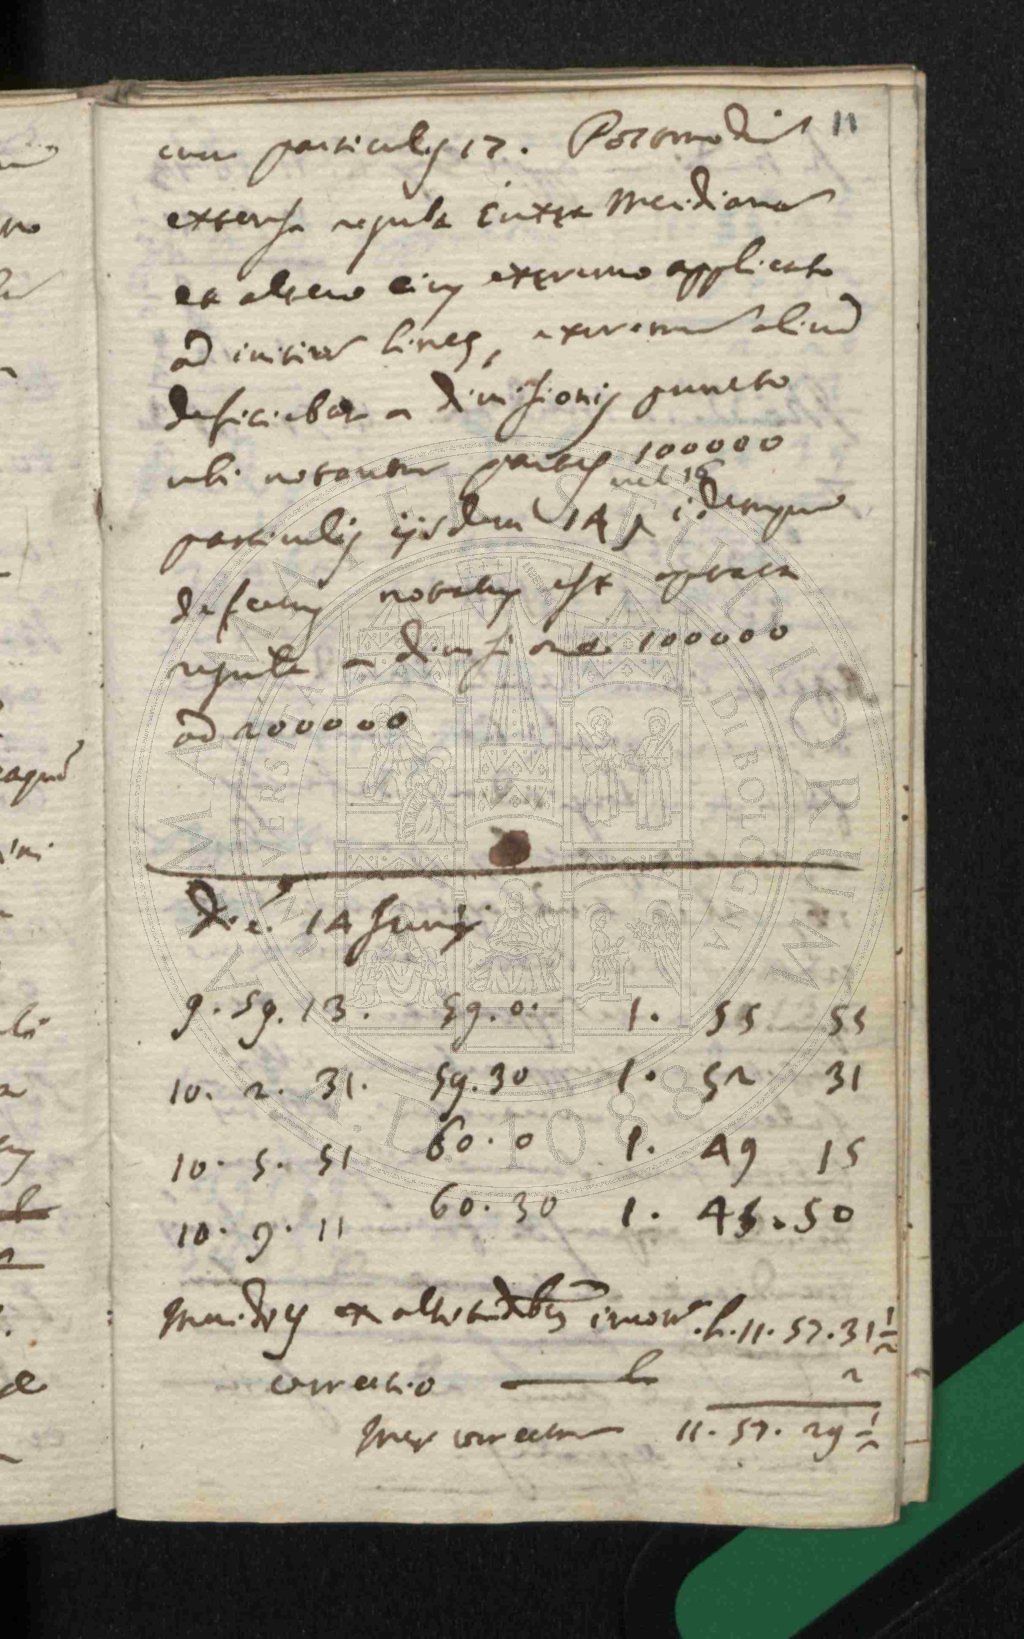 11
cum particulis 17. Postmodum
extensa regula iuxta Meridianam
et altero eius extremo applicato
ad initium lineę, extremum aliud
deficiebat a divisionis puncto
ubi notantur partes 100000
vel 15
particulis ijsdem 14 & idemque
defectus notatus est aptata
regula a divisione 100000
ad 200000
Die. 14 Junij
9. 59. 13. 59. 0. 1. 55 55
10. 2. 31. 59. 30 1. 52 31
10. 5. 51 60. 0 1. 49 15
10. 9. 11 60. 30 1. 45. 50
Meridies ex altitudibus .h. 11. 57. 31 1/2
correctio 2
Mer correctus 11. 57. 29 1/2
ALMA MATER STUDIORUM
UNIVERSITÀ DI BOLOGNA
A.D. 1088